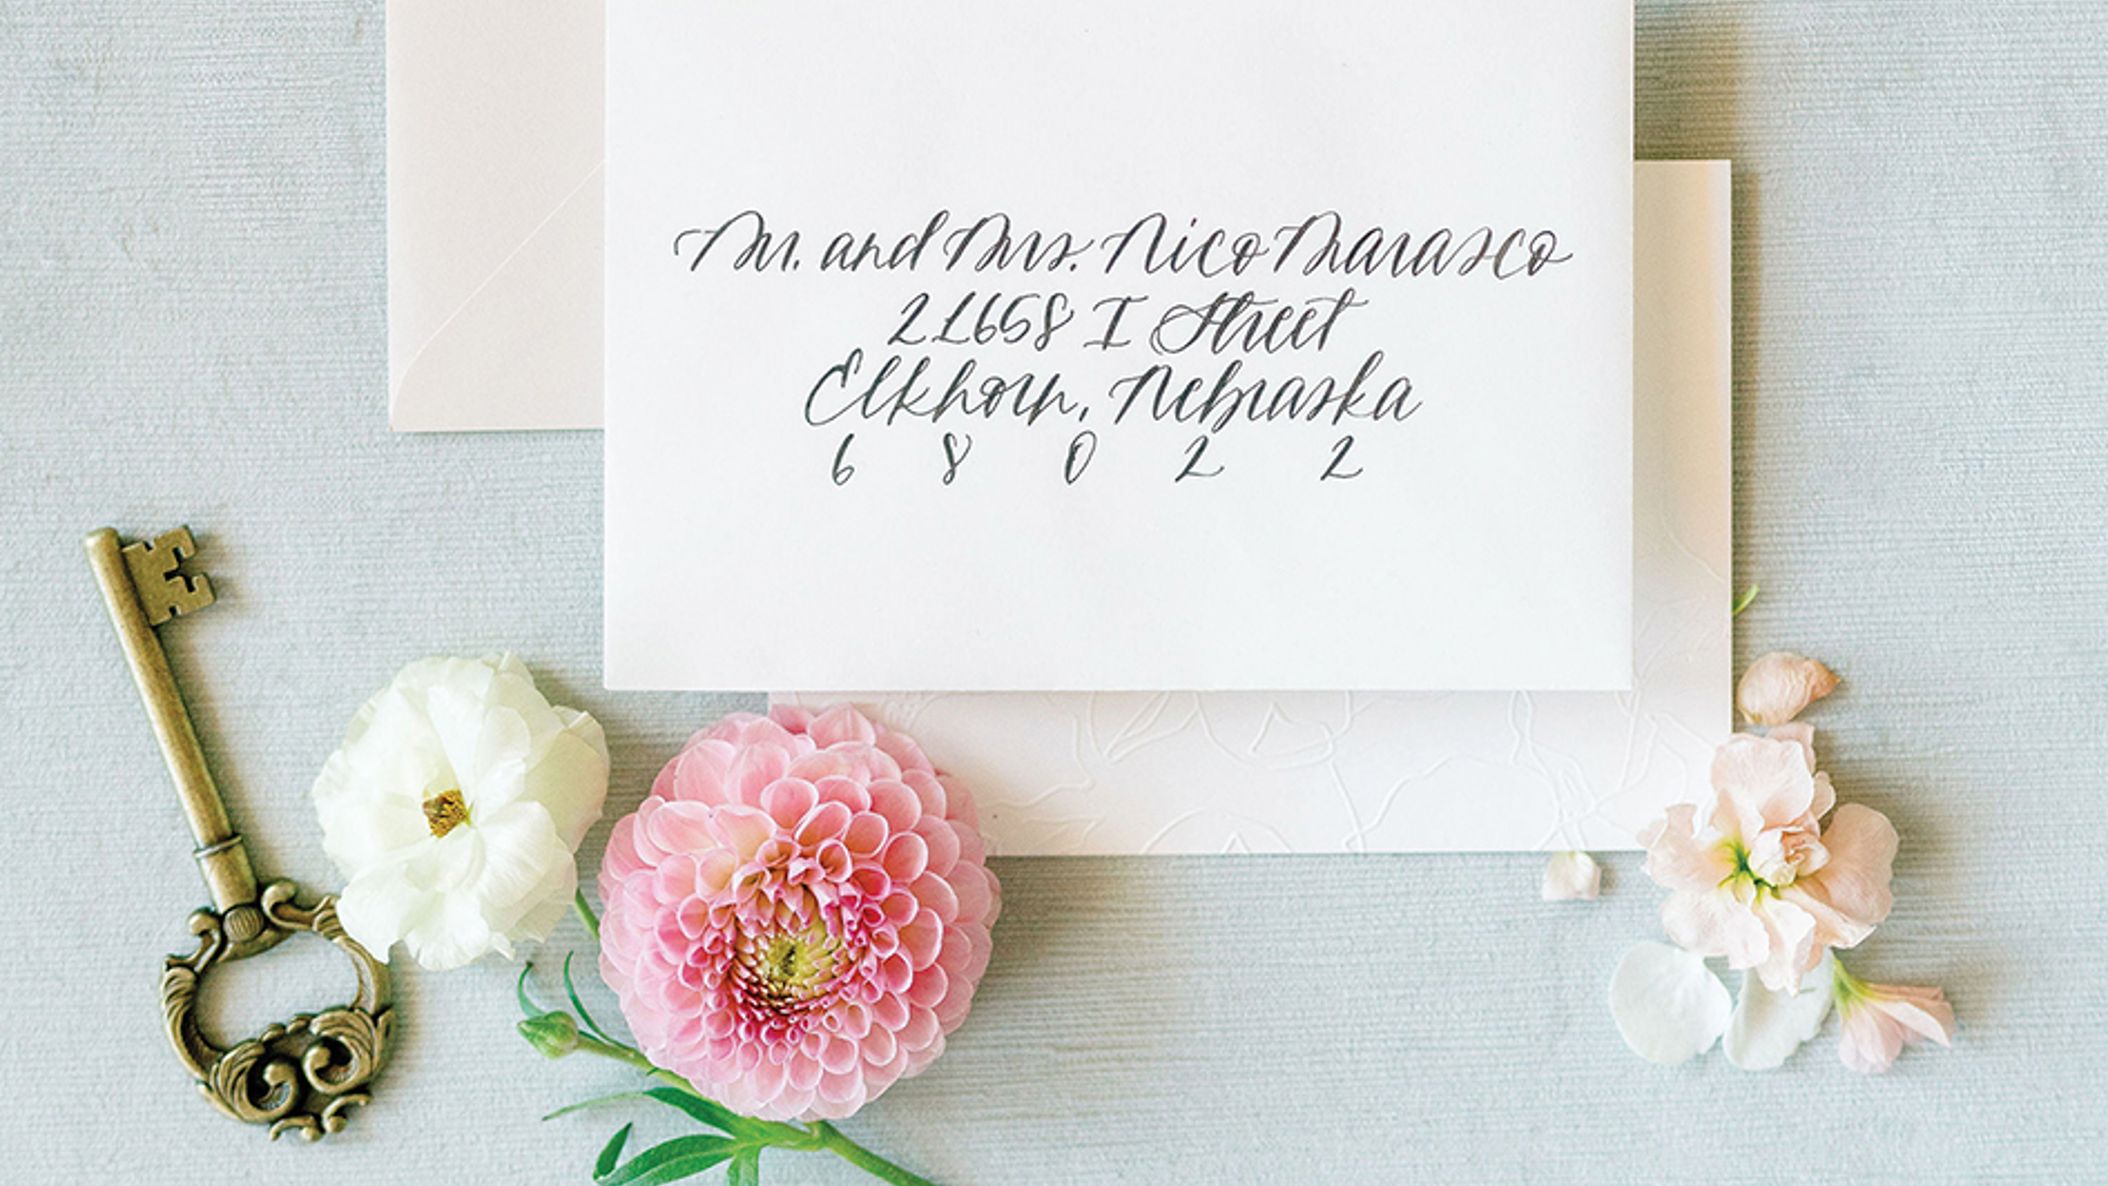 Mr. and Mrs. Nico Marasco
21658 I Street
Elkhorn, Nebraska
6 8 0 2 2